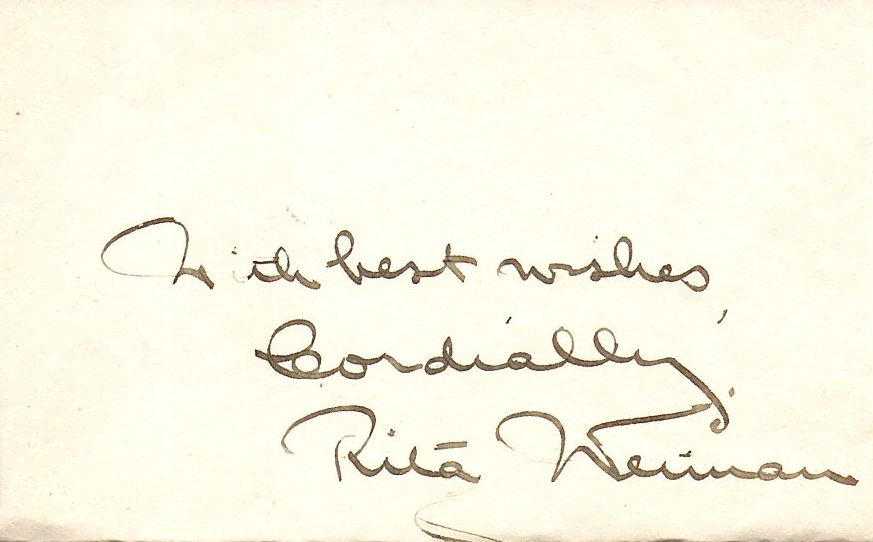 With best wishes,
Cordially,
Rita Weiman